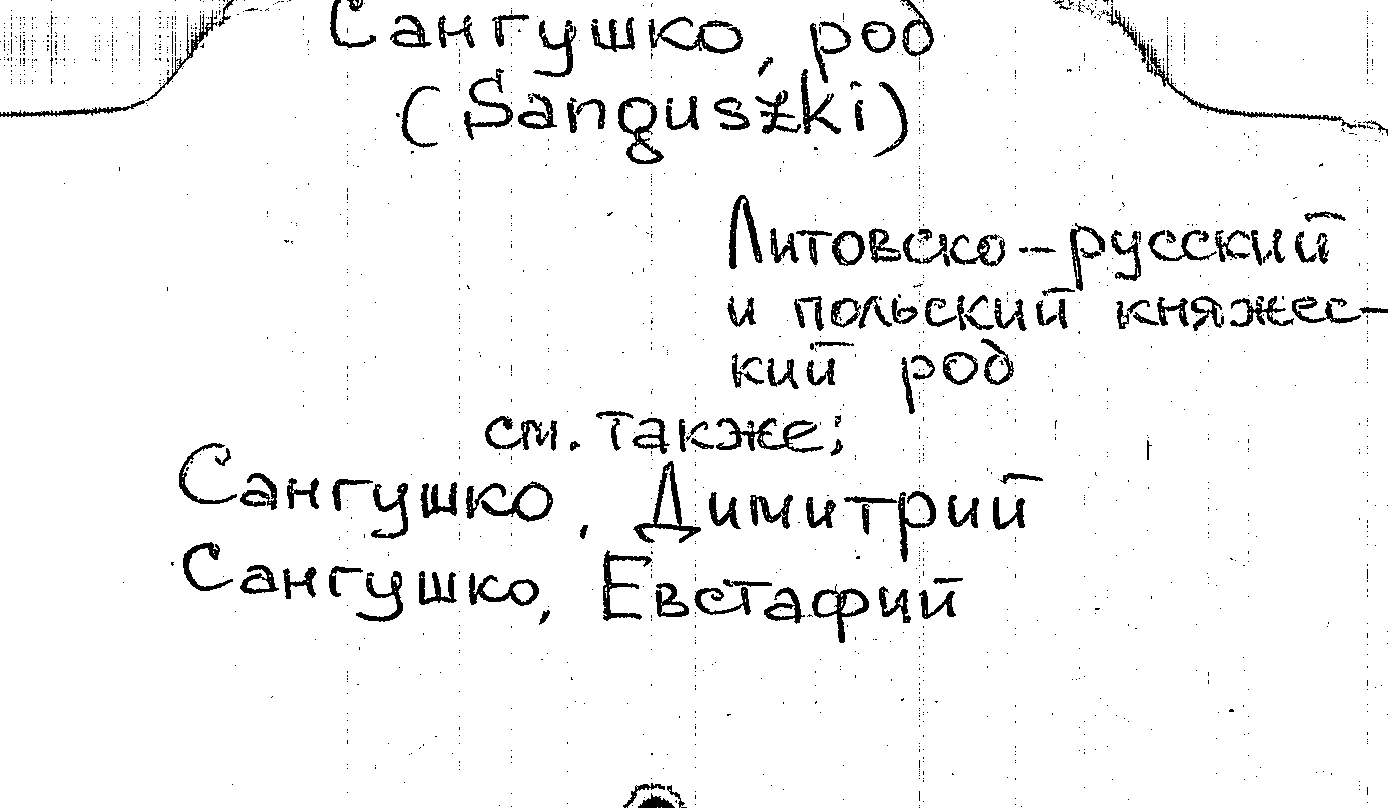 Сангушко, род
(Sanguszki)
Литовско-русский
и польский княжес-
кий род
см. также:
Сангушко, Димитрий
Сангушко, Евстафий